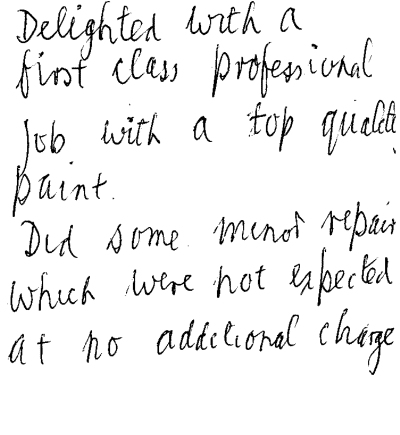 Delighted with a
first class professional
job with a top qualit
paint.
Did some minor repair
which were not expected
at no additional charge